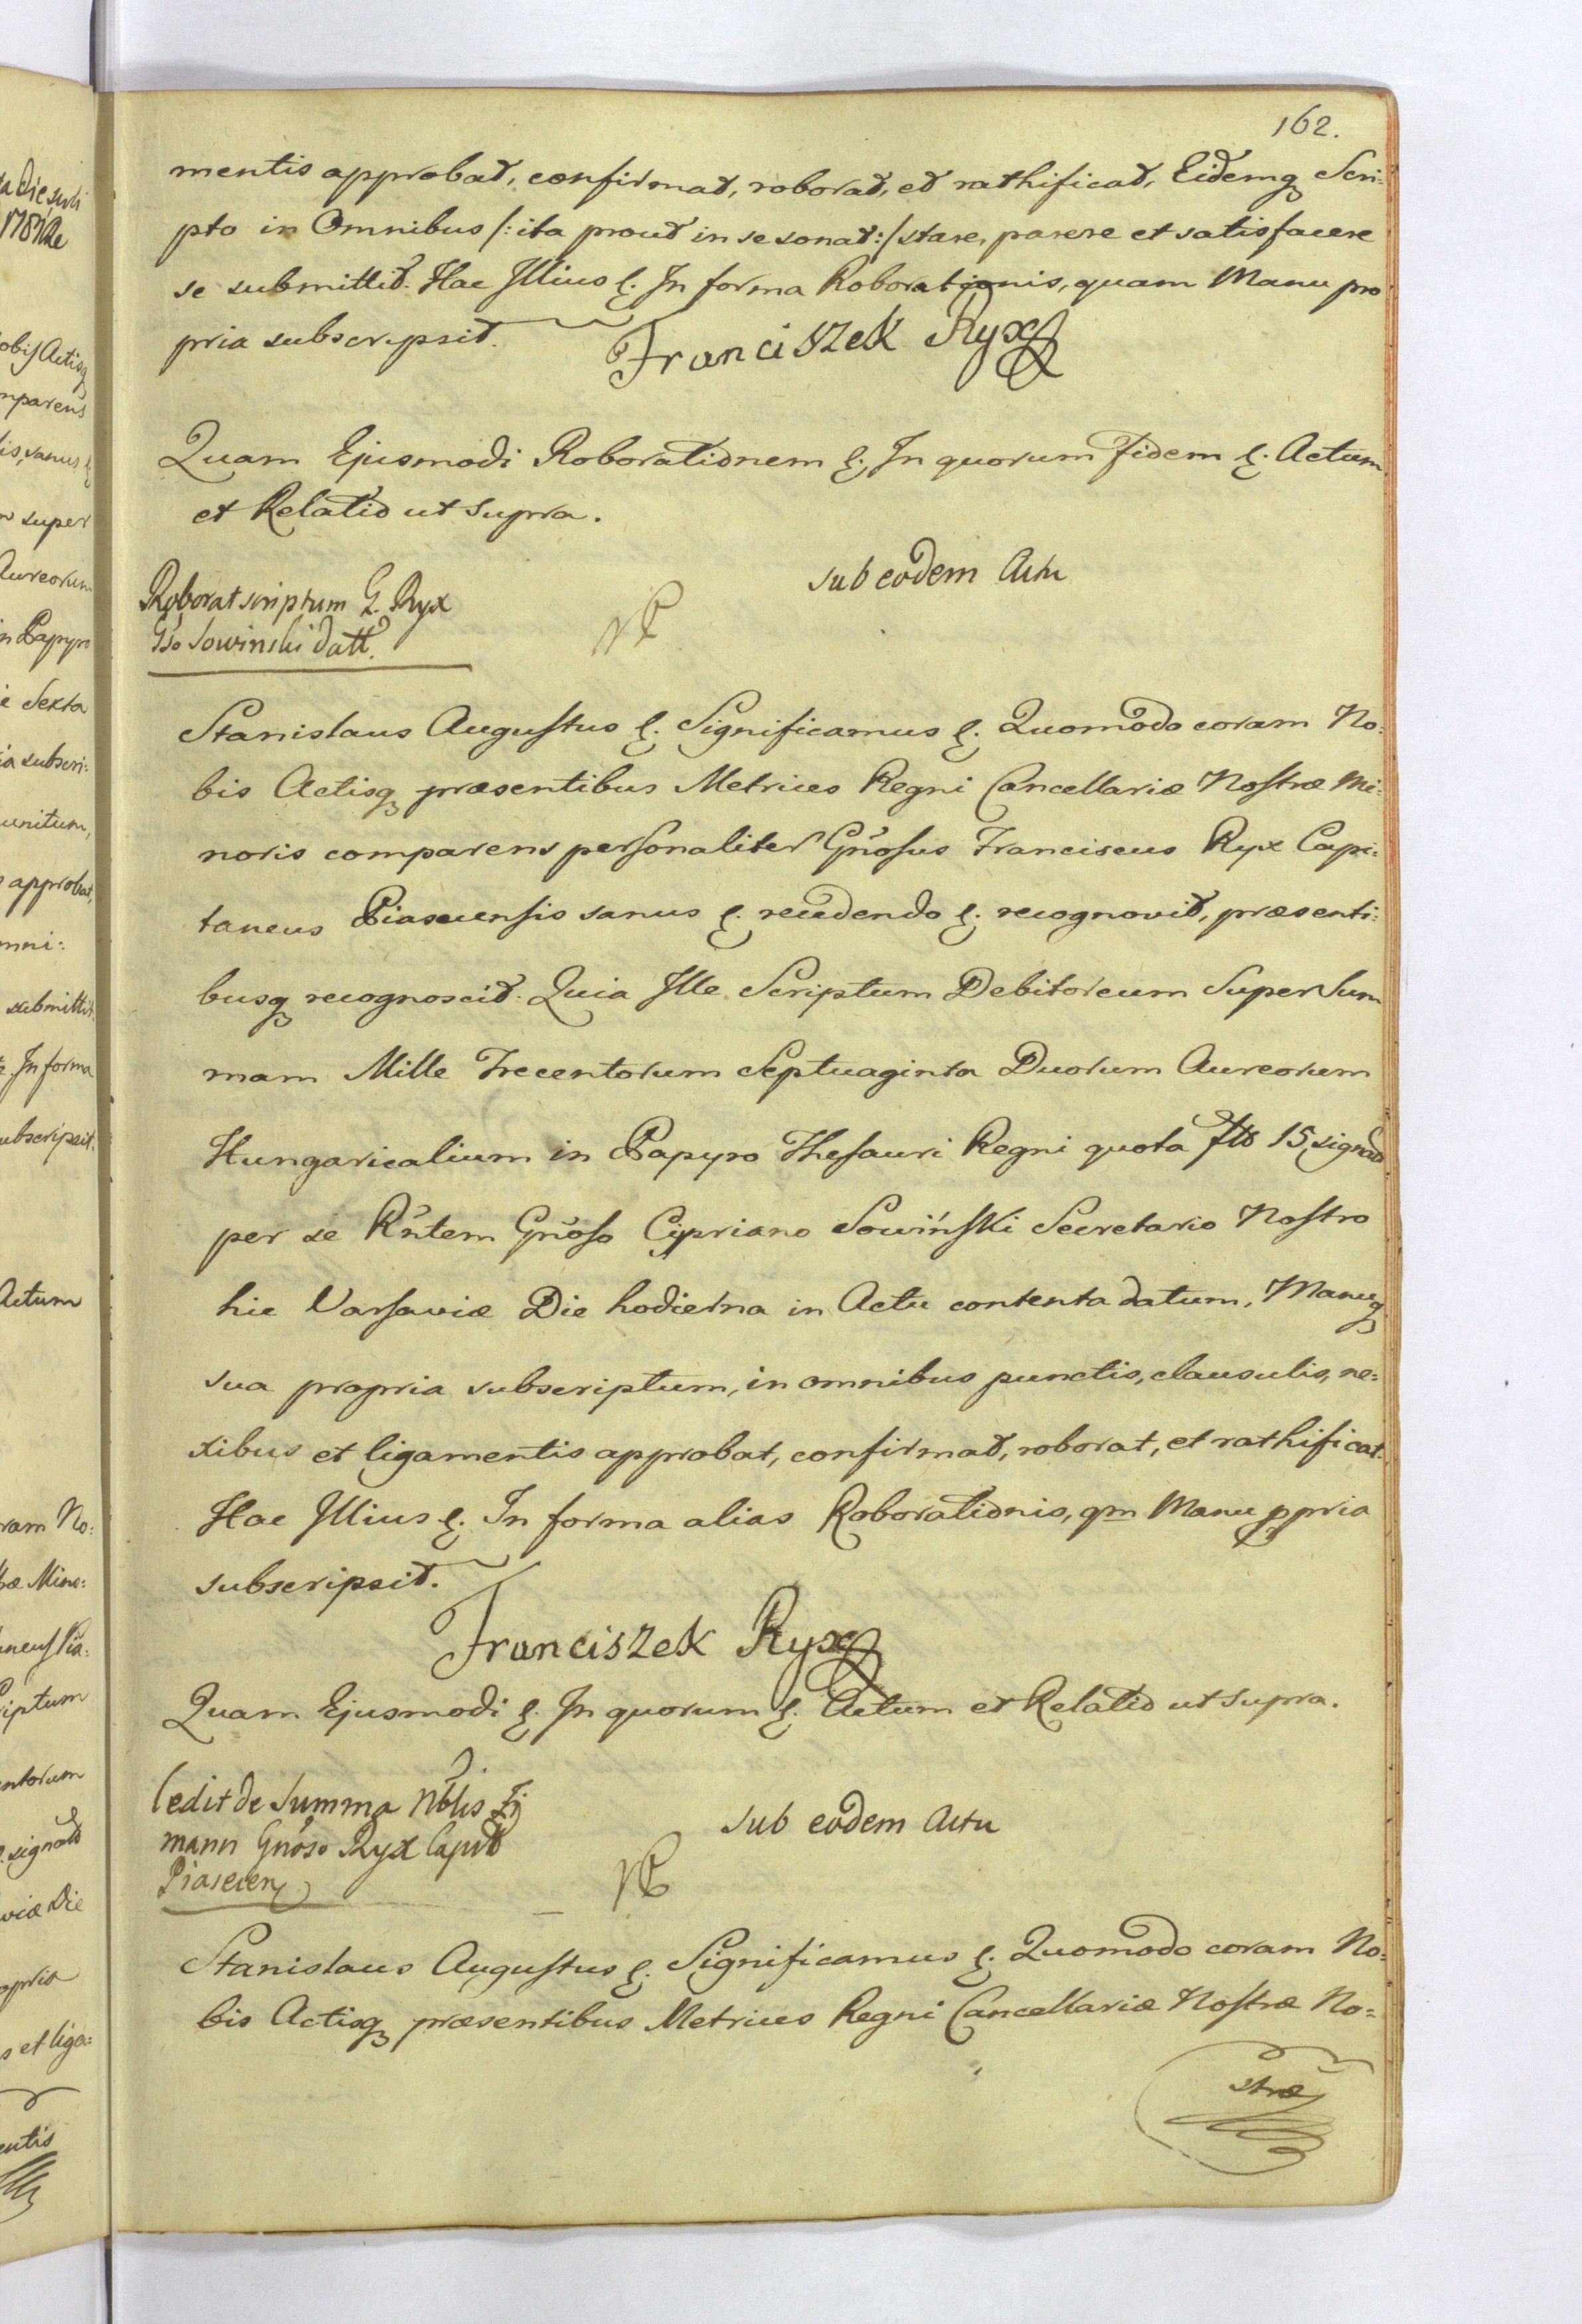 162.
mentis approbat, confirmat, roborat, et rathificat, Eidemq Scri:
pto in Omnibus /: ita prout in se sonat :/ stare, parere et satisfacere
se submittit. Hac Illius &. In forma Roborationis, quam Manu pro
pria subscripsit.
Franciszek Ryx
Quam Ejusmodi Roborationem &. In quorum Fidem &. Actum
et Relatio ut supra.
sub eodem Actu
Roborat scriptum G. Ryx
Gso Sowinski datt.
Stanislaus Augustus &. Significamus &. Quomodo coram No:
bis Actisq præsentibus Metrices Regni Cancellariæ Nostræ Mi:
noris comparens personaliter Gnosus Franciscus Ryx Capi:
taneus Piasecensis sanus &. recedendo &. recognovit, præsenti:
busq recognoscit. Quia Ille Scriptum Debitoreum Super Sum
mam Mille Trecentorum Septuaginta Duorum Aureorum
Hungaricalium in Papyro Thesauri Regni quota fl 15 signat
per se Rntem Gnoso Cypriano Sowiński Secretario Nostro
hic Varsaviæ Die hodierna in Actu contenta datum, Manuq
sua propria subscriptum, in omnibus punctis, clausulis, ne=
xibus et ligamentis approbat, confirmat, roborat, et rathificat.
Hac Illius &. In forma alias Roborationis, qm Manu ppria
subscripsit.
Franciszek Ryx
Quam Ejusmodi &. In quorum &. Actum et Relatio ut supra.
Cedit de Summa Nblis Zy
mann Gnoso Ryx Capit
Piasecen
sub eodem Actu
Stanislaus Augustus &. Significamus &. Quomodo coram No=
bis Actisq præsentibus Metrices Regni Cancellariæ Nostræ No=
stræ